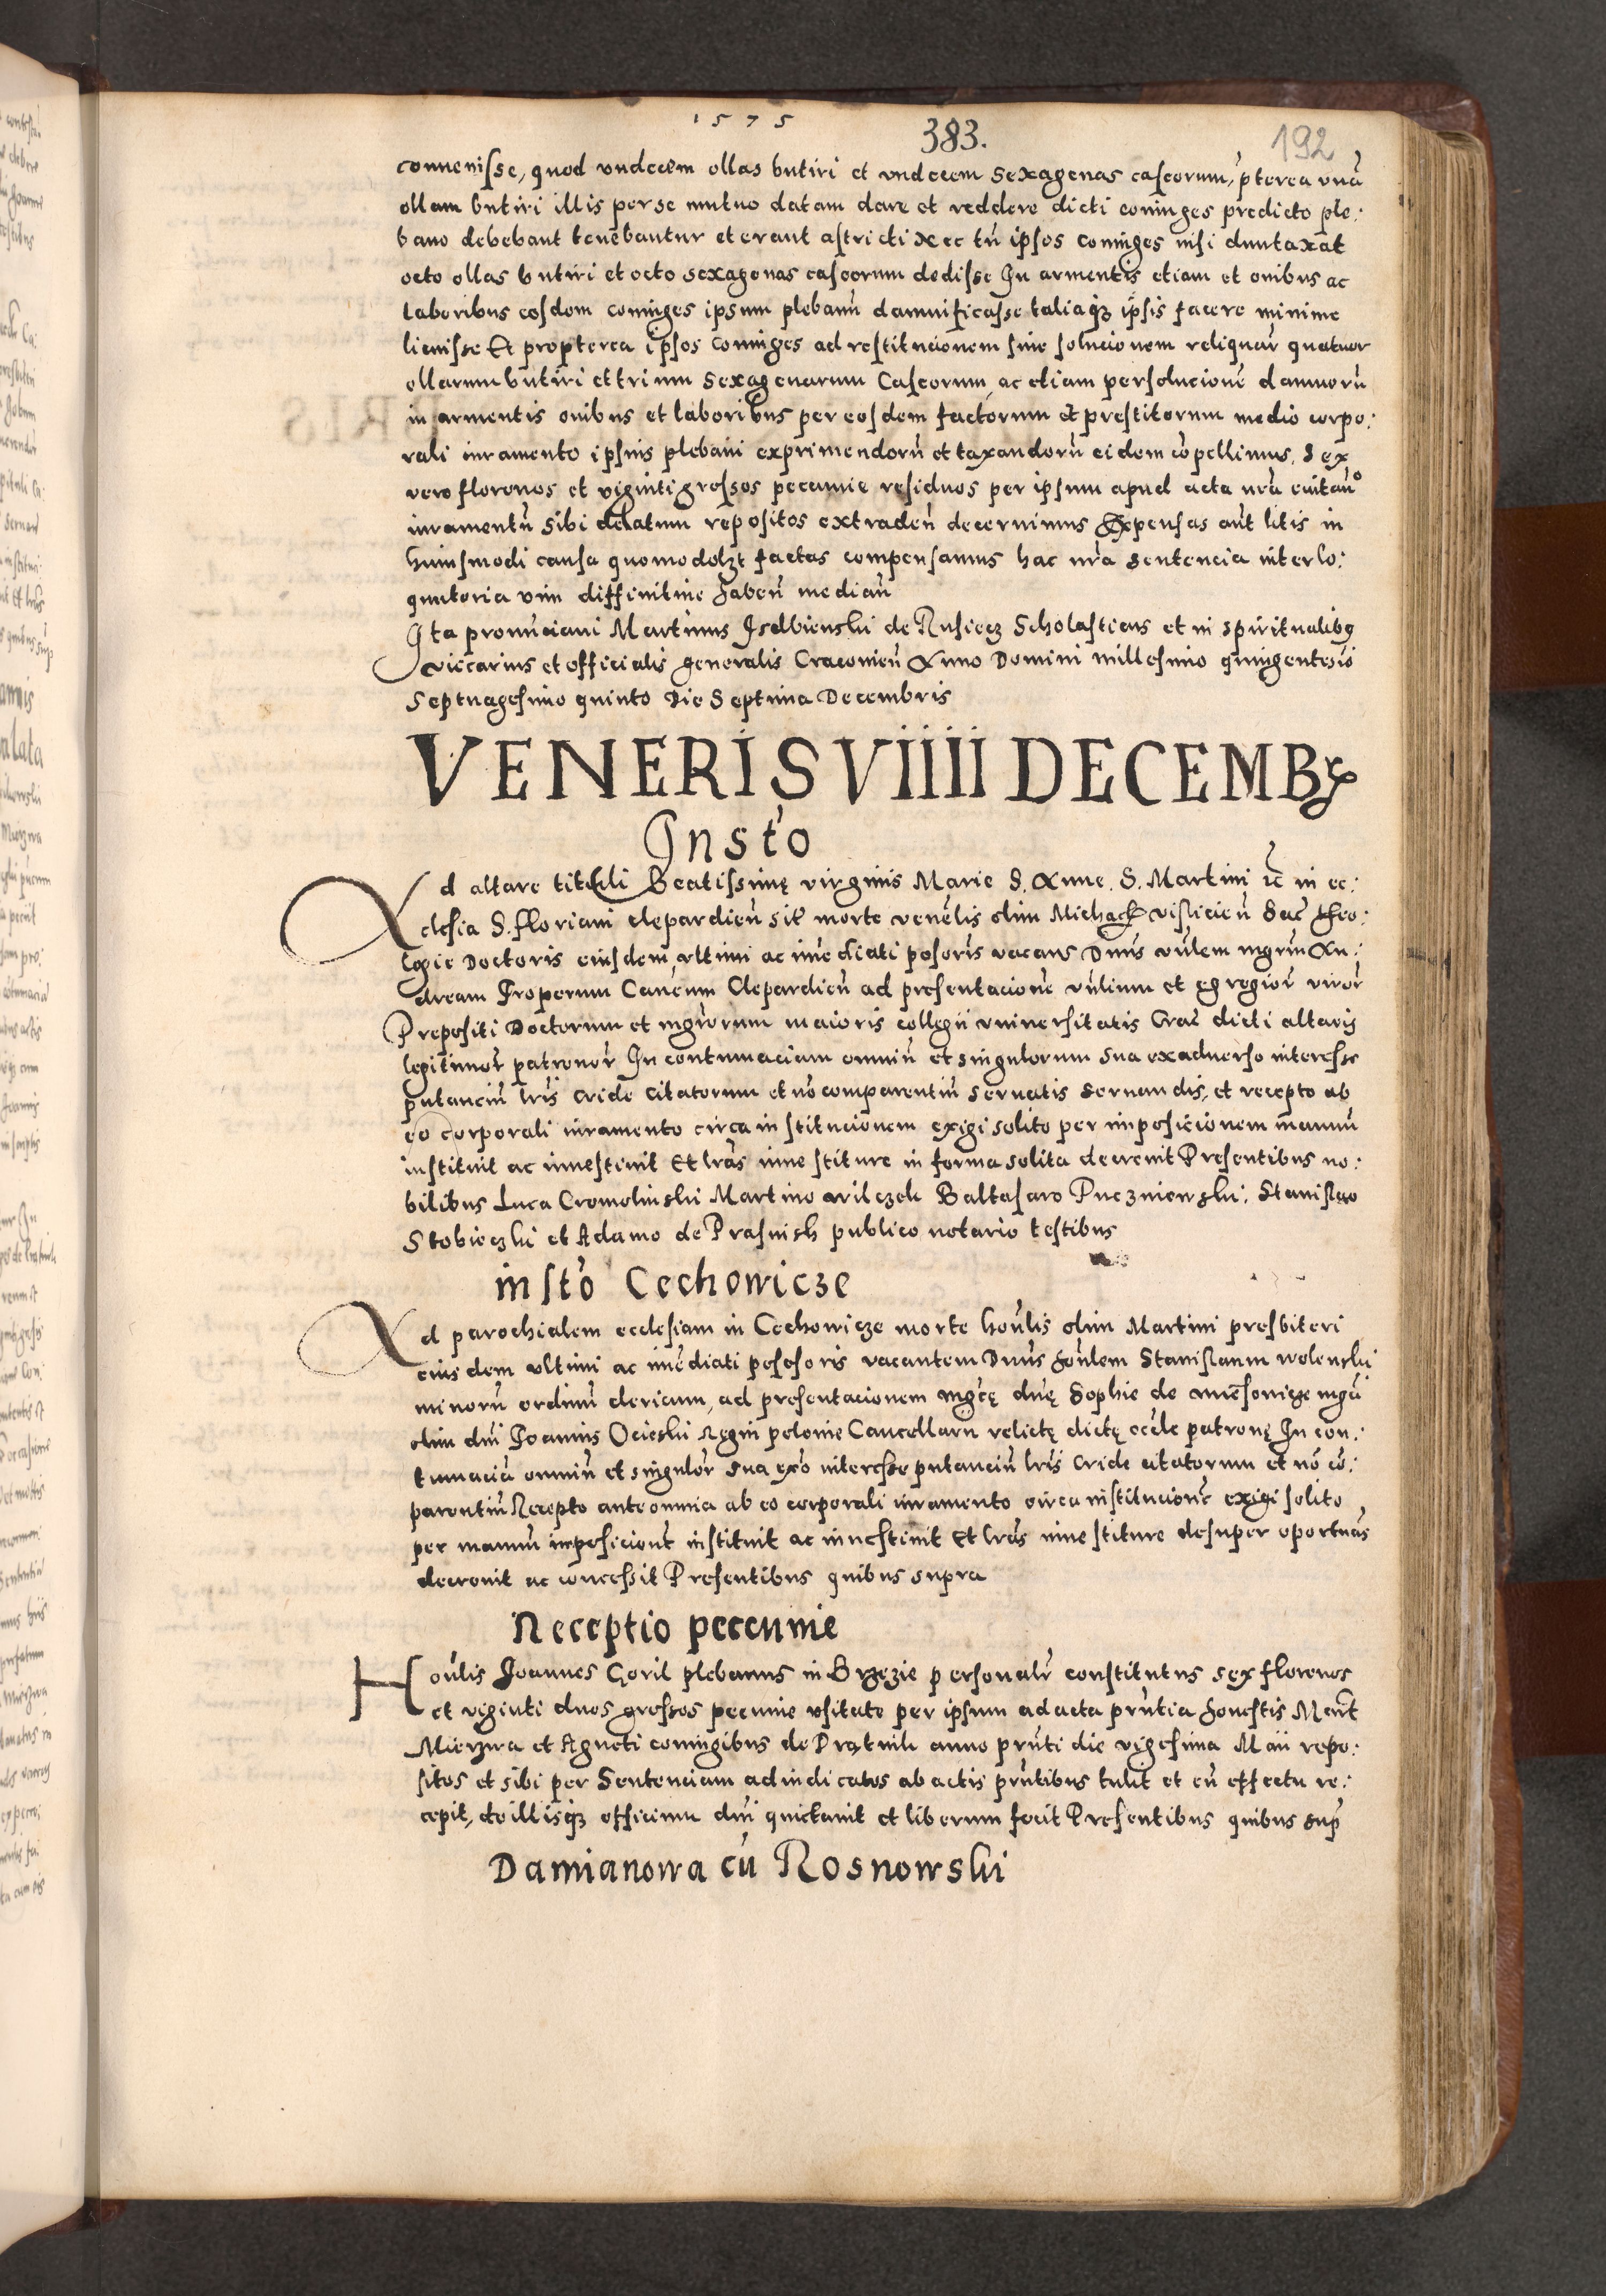 1575
383.
192
convenisse, quod vndecem ollas butiri et vndecem sexagenas caseorum, p̄terea vnā
ollam butiri illis per se mutuo datam dare et reddere dicti coniuges predicto ple:
bano debebant tenebantur et erant astricti nec tn̄ ipsos coniuges nisi duntaxat
octo ollas butiri et octo sexagenas caseorum dedisse In armentis etiam et ouibus ac
laboribus eosdem coniuges ipsum plebanū damnificasse taliaqʒ ipsis facere minime
licuisse Et propterea ipsos coniuges ad restitucionem siue solucionem reliquar̄ quatuor
ollarum butiri et trium sexagenarum Caseorum, ac etiam persolucionē damnorū
in armentis ouibus et laboribus per eosdem factorum et prestitorum medio corpo:
rali iuramento ipsius plebani exprimendorū et taxandorū eidem cōpellimus. Sex
vero florenos et viginti grossos pecunie residuos per ipsum apud acta nr̄a euitan̄o
iuramentū sibi delatum repositos extraden̄ decernimus Expensas aūt litis in
huiusmodi causa quomodolʒt factas compensamus hac nr̄a sentencia interlo:
quutoria vim diffinitiue haben̄ median̄
Ita pronūciaui Martinus Isdbienski de Rusiecz Scholasticus et in spiritualibꝫ
viccarius et officialis generalis Cracouien̄ Anno Domini millesimo quingentesio
Septuagesimo quinto Die Septima Decembris
VENERIS VIIII DECEMBꝝ
Insto
Ad altare tituli Beatissimę virginis Marie S. Anne. S. Martini ec̄ in ec:
clesia S. Floriani clepardien̄ sit̄ morte venēlis olim Michaelis vislicien̄ Sac̄ theo:
logie Doctoris eiusdem vltimi ac imēdiati posoris vacans Dn̄s vn̄lem mgr̄m An:
dream Properum Cancum Clepardien̄ ad presentacionē vn̄lium et egregior̄ viror̄
Prepositi Doctorum et mgr̄orum maioris collegii vniuersitatis Crac̄ dicti altaris
legitimor̄ patronor̄ In contumaciam omniū et singulorum sua ex aduerso interesse
putanciū lr̄is cride citatorum et nō comparentiū seruatis seruandis, et recepto ab
eo corporali iuramento circa institucionem exigi solito per imposicionem manuū
instituit ac inuestiuit Et lr̄as inuestiture in forma solita decreuit Presentibus no:
bilibus Luca Cromolinski Martino wilczek Baltasaro Puczniowski: Stanislao
Stobieczki et Adamo de Prasnish publico notario testibus
insto Cechowicze
Ad parochialem ecclesiam in Cechowicze morte hon̄lis olim Martini presbiteri
eiusdem vltimi ac imēdiati possesoris vacantem Dn̄s hon̄lem Stanislaum wolenski
minorū ordinū clericum, ad presentacionem mgcę dn̄ę Sophie de  mgci
olim dn̄i Joannis Ocieski Regni polonie Cancellarii relictę dictę eccl̄e patronę In con:
tumaciā omniū et singulor̄ sua exo interesse putanciū lr̄is cride citatorum et nō cō:
parentiū Recepto ante omnia ab eo corporali iuramento circa institucionē exigi solito
per manuū imposicionē instituit ac inuestiuit Et lr̄as inuestiture desuper oportunas
decreuit ac concessit Presentibus quibus supra
Receptio pecunie
Hon̄lis Joannes Goril plebanus in Brzezie personalr̄ constitutus sex florenos
et viginti duos grossos pecunie vsitate per ipsum ad acta prn̄tia honestis Mart̄
Mierzwa et Agneti coniugibus de Pratnik anno prn̄ti die vigesima Maii repo:
sitos et sibi per Sentenciam adiudicatos ab actis prn̄tibus tulit et cū effectu re:
cepit, de illisqʒ officium dn̄i quictauit et liberum fecit Presentibus quibus sup̄
Damianowa cū Rosnowski